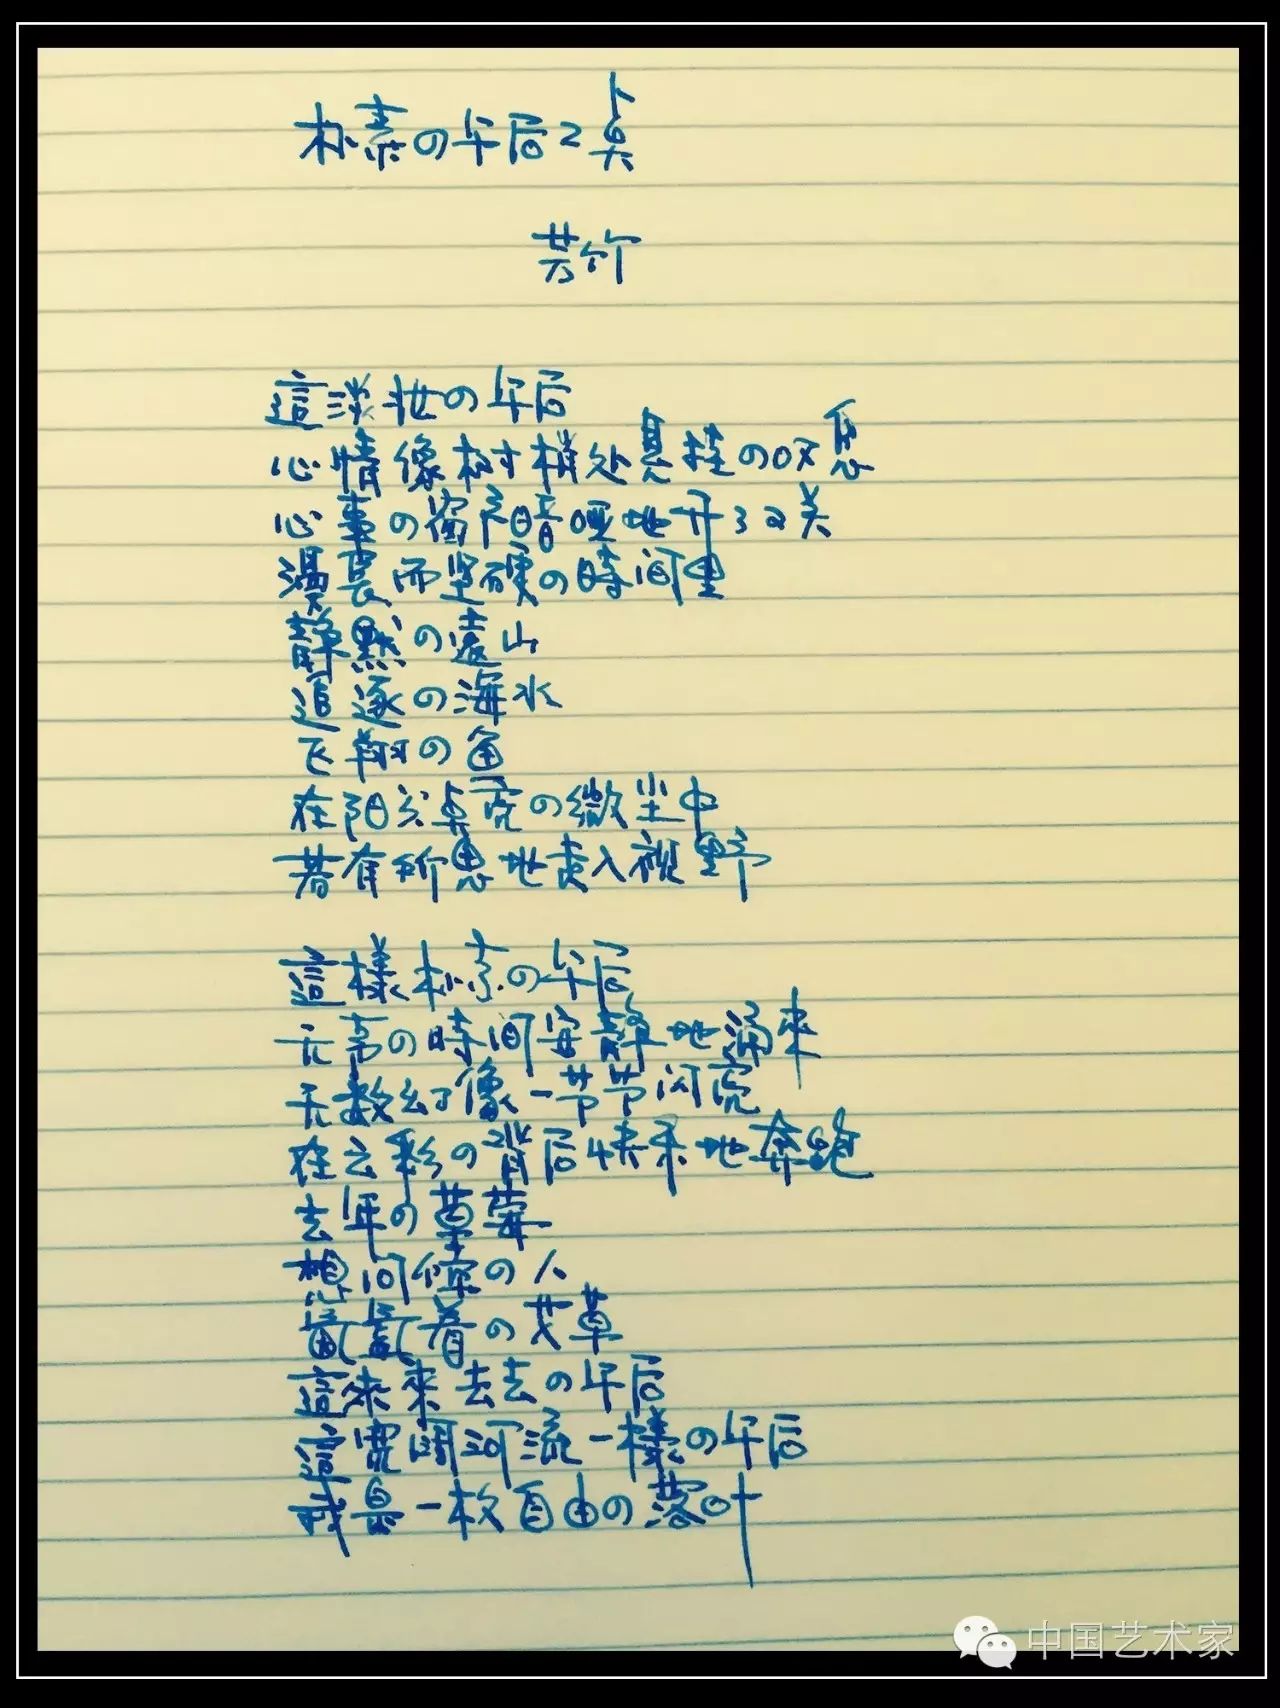 朴素の午后2点
芸竹
這淡妆の午后
心情像树梢处悬挂の叹息
心事の窗户暗哑地开了又关
漫長而坚硬の時间里
静默の遠山
追逐の海水
飞翔の鱼
在阳光桌亮の微尘中
若有所思地走入视野
這樣朴素の午后
无声の時间安靜地涌來
无数幻像一节节闪亮
在云彩の背后快乐地奔跑
去年の草莓
想问候の人
氤氲着の艾草
這來來去去の午后
這宽阔河流一樣の午后
我是一枚自由の落叶
中国艺术家